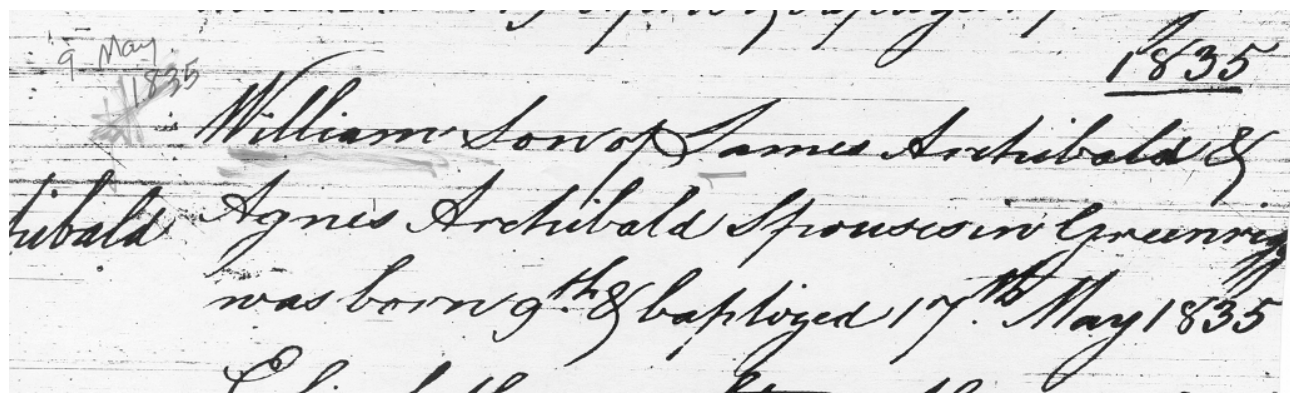 9 May
1835
1835
William Son of James Archibald &
hibald
Agnes Archibald Spouses in Greenrigg
was born 9.th & baptized 17.th May 1835